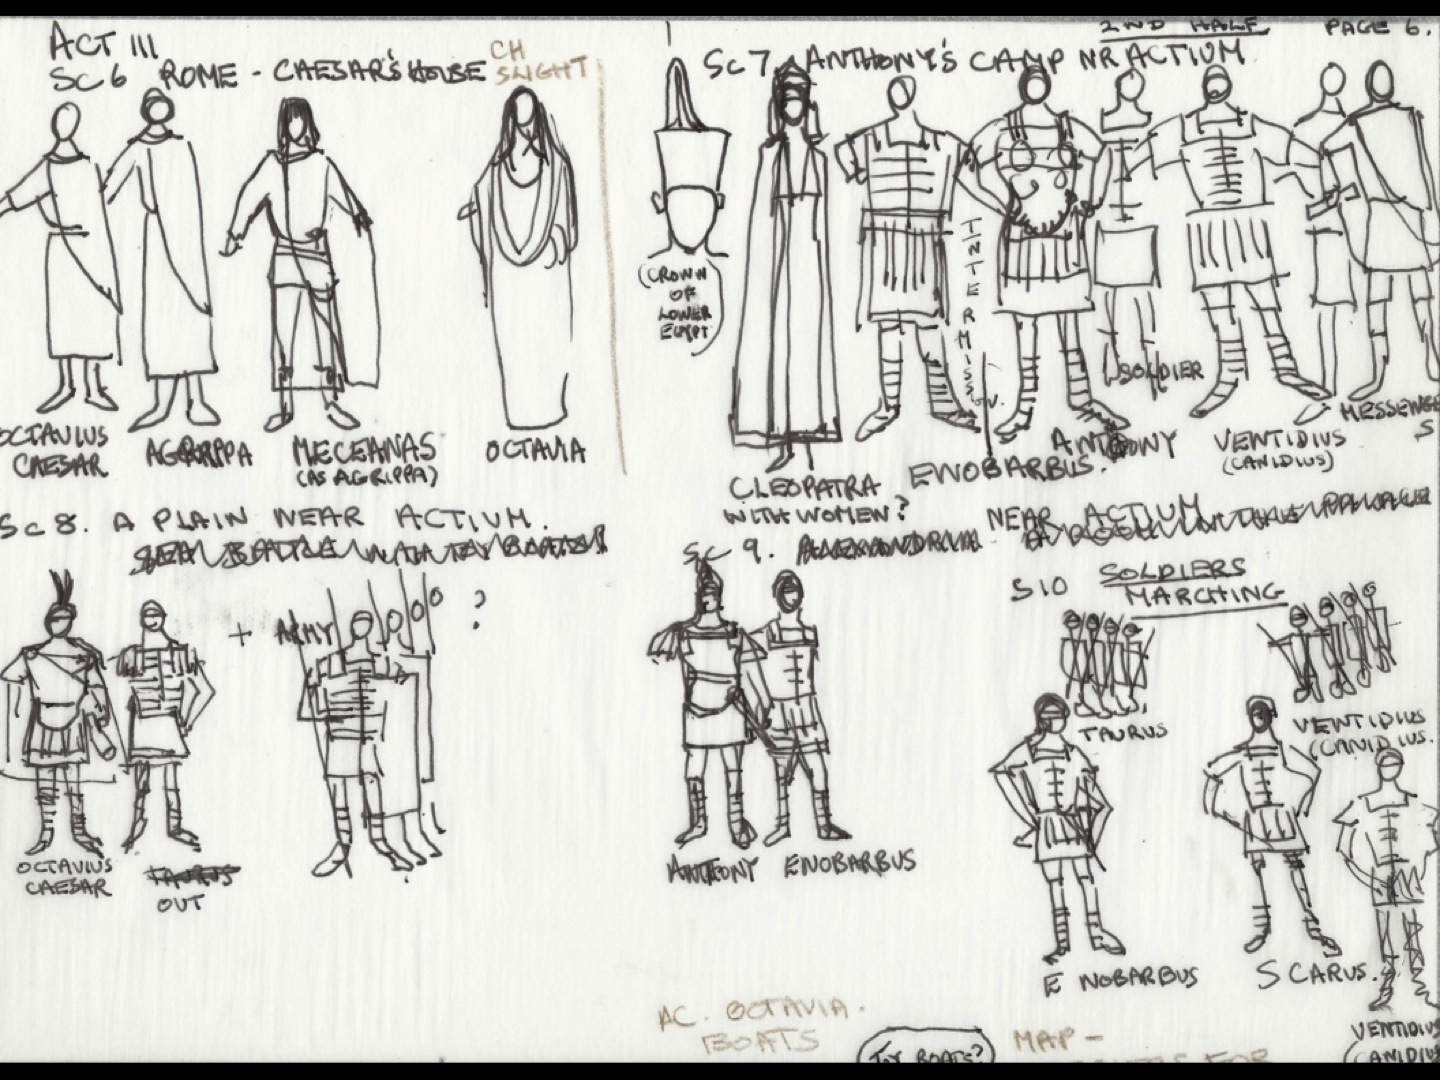 ACT III
Sc 6 ROME - CAESAR'S HOUSE
CH
SLIGHT
OCTAVIUS
CAESAR
AGRIPPA
MECEANAS
(AS AGRIPPA)
OCTAVIA
2ND HALF PAGE 6.
Sc 7. ANTHONY'S CAMP NR ACTIUM
(CROWN
OF
LOWER
EGYPT)
CLEOPATRA
WITH WOMEN?
ENOBARBUS.
ANTHONY
SOLDIER
VENTIDIUS
(CANIDIUS)
Sc 8. A PLAIN NEAR ACTIUM.
+ ARMY ?
OCTAVIUS
CAESAR
TAURUS
OUT
Sc 9. NEAR ACTIUM
ANTHONY ENOBARBUS
S10 SOLDIERS
MARCHING
TAURUS
VENTIDIUS
(CANIDIUS.
ENOBARBUS
SCARUS.
VENTIDIUS
(CANIDIUS
AC. OCTAVIA.
BOATS
TOY BOATS?
MAP -